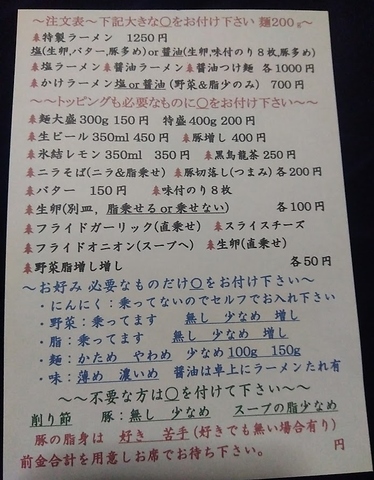 ～注文表～下記大きな〇をお付け下さい 麺200g～
特製ラーメン 1250円
塩(生卵,バター,豚多め)or 醤油(生卵,味付のり8枚,豚多め)
塩ラーメン 醤油ラーメン 醤油つけ麺 各1000円
かけラーメン塩or醤油(野菜&脂少のみ) 700円
～～トッピングも必要なものに〇をお付け下さい～
麺大盛300g 150円 特盛400g 200円
生ビール350ml 450円 豚増し400円
氷結レモン350ml 350円 黒烏龍茶250円
ニラそば(ニラ&脂乗せ) 豚切落し(つまみ)各200円
バター 150円 味付のり8枚
生卵(別皿,脂乗せる or 乗せない) 各100円
フライドガーリック(直乗せ) スライスチーズ
フライドオニオン(スープへ) 生卵(直乗せ)
野菜脂増し増し 各50円
～お好み 必要なものだけ〇をお付け下さい～
・にんにく：乗ってないのでセルフでお入れ下さい
・野菜：乗ってます 無し 少なめ 増し
・脂：乗ってます 無し 少なめ 増し
・麺：かため やわめ 少なめ100g 150g
・味：薄め 濃いめ 醤油は卓上にラーメンたれ有
～～不要な方は〇を付けて下さい～
削り節 豚：無し 少なめ スープの脂少なめ
豚の脂身は 好き 苦手(好きでも無い場合有り)
前金合計を用意しお席でお待ち下さい。 円